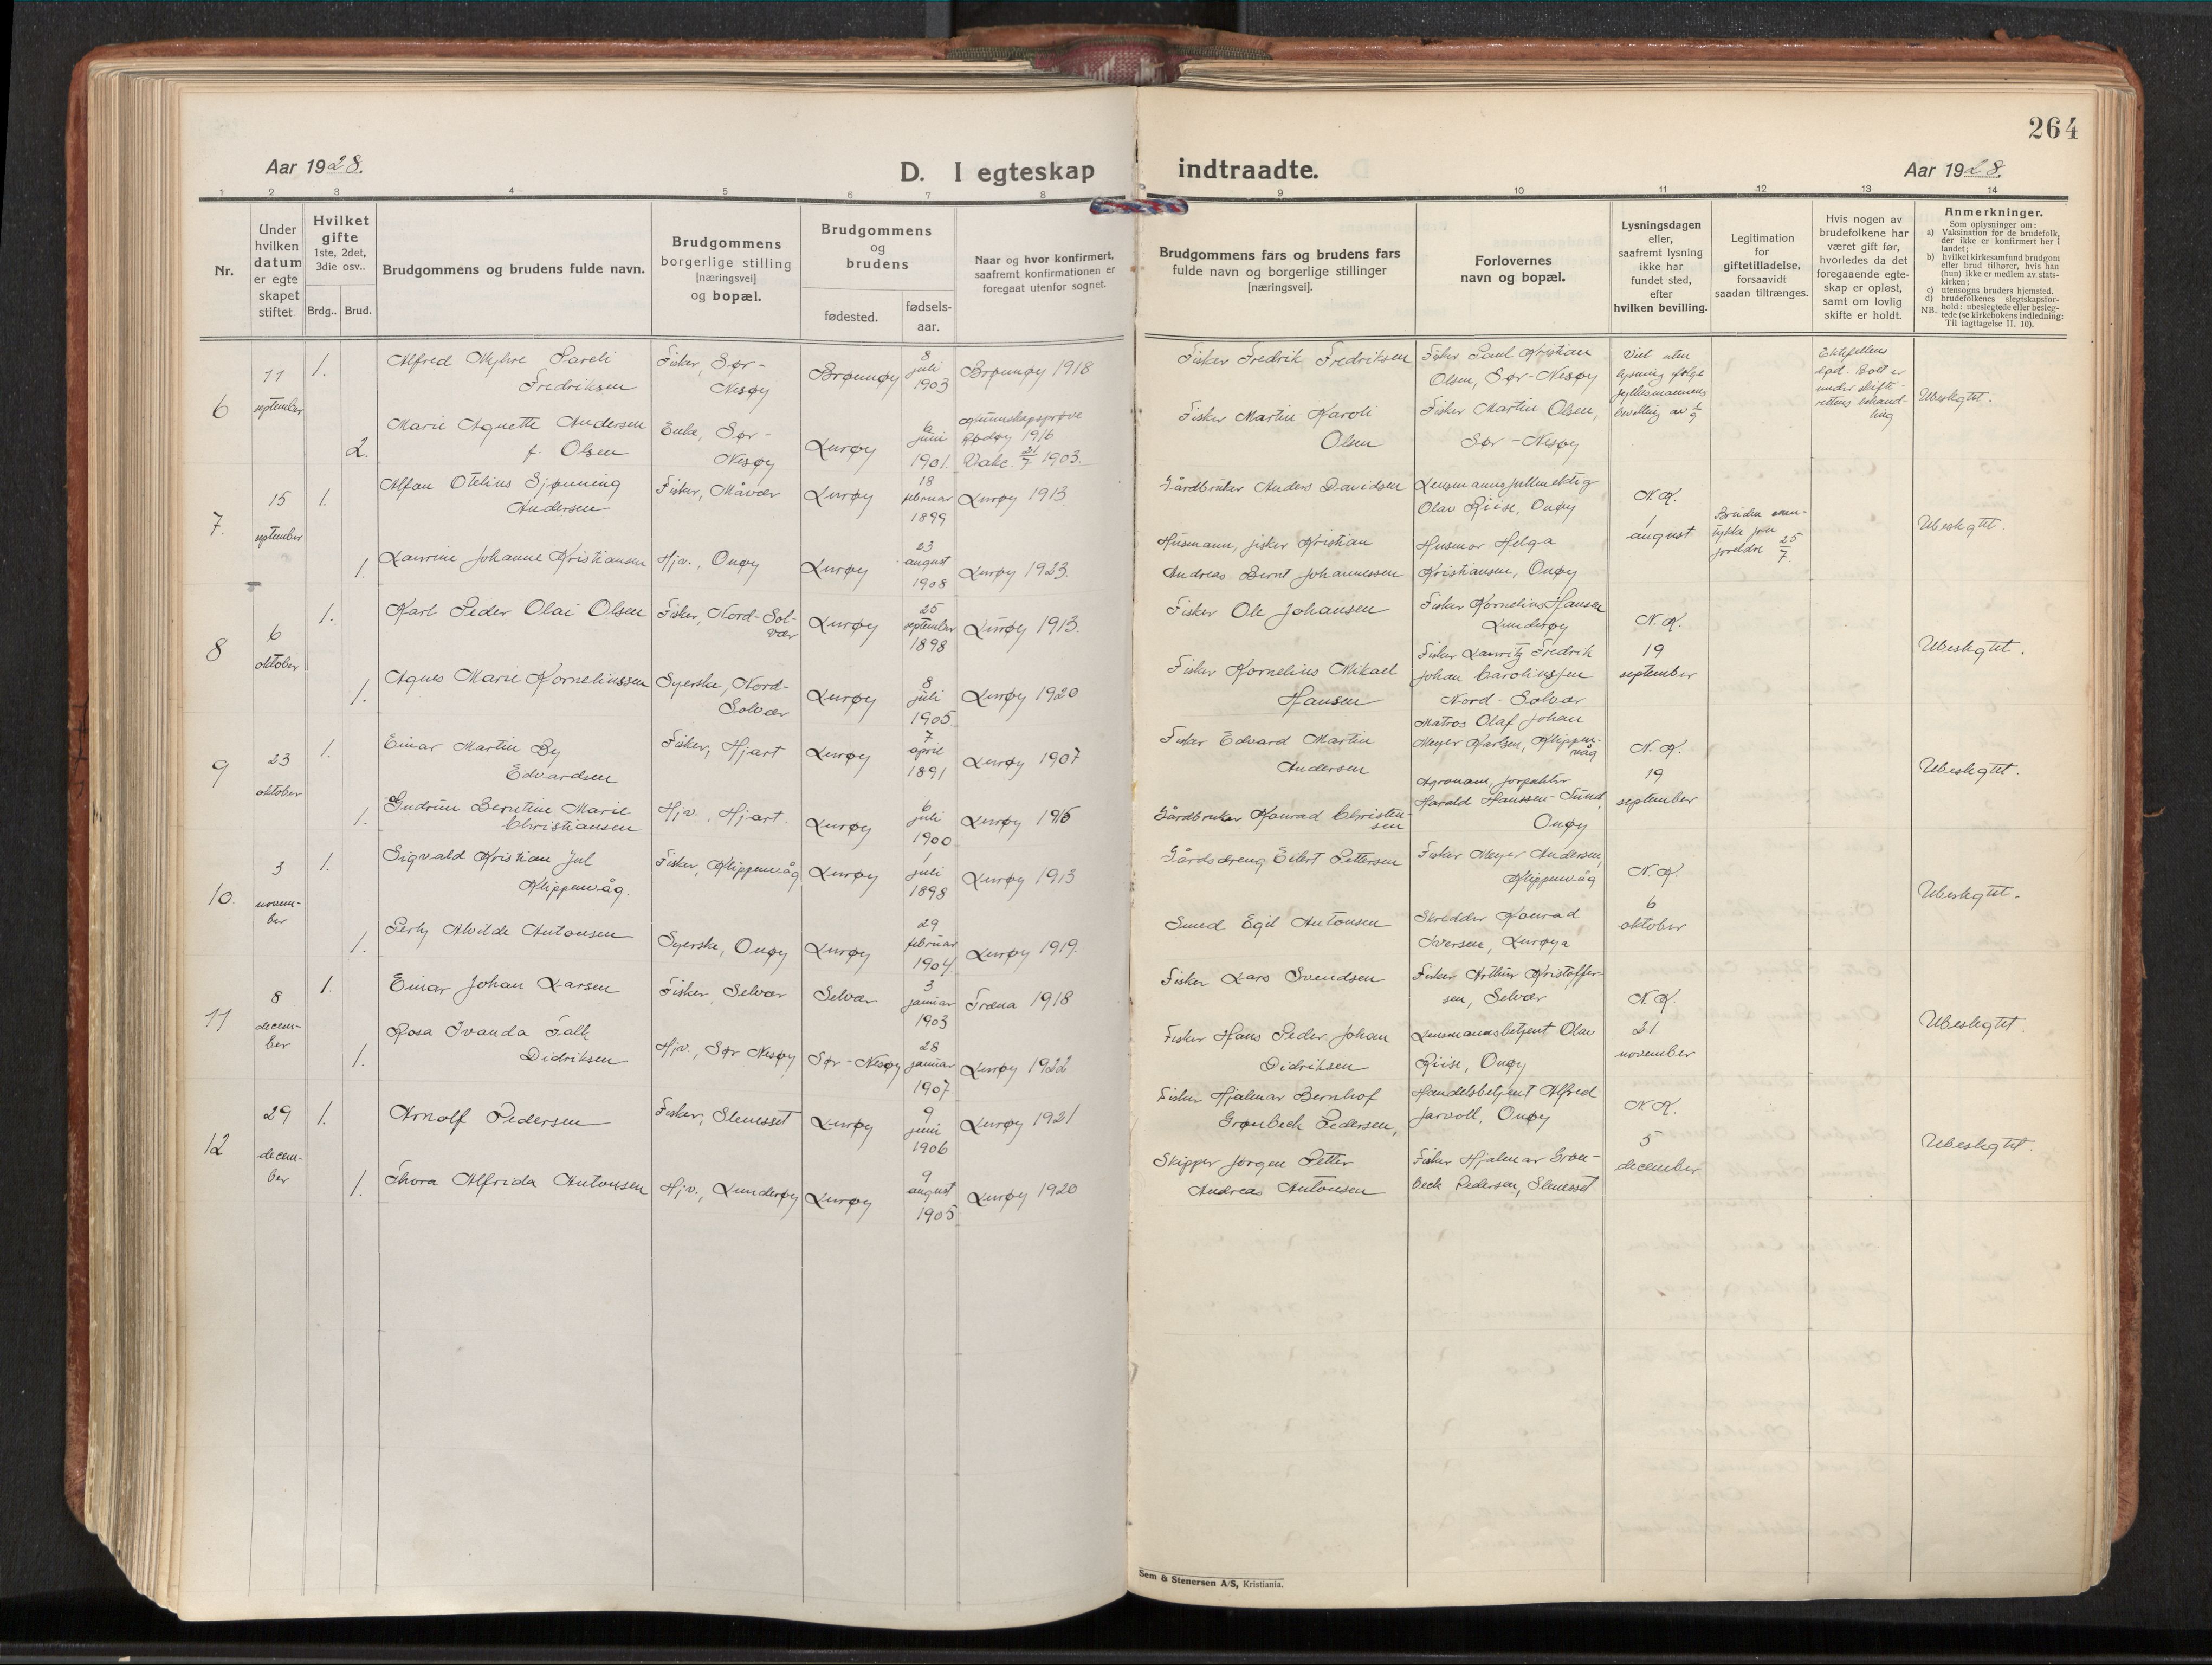 264
Aar 1928.
D. I egteskap
indtraadte.
Aar 1928.
1 2 3 4 5 6 7 8 9 10 11 12 13 14
Nr.
Under
hvilken
datum
er egte
skapet
stiftet
Hvilket
gifte
1ste, 2det,
3die osv..
Brdg.. Brud.
Brudgommens og brudens fulde navn.
Brudgommens
borgerlige stilling
[næringsvei]
og bopæl.
Brudgommens
og
brudens
fødested.
fødsels-
aar.
Naar og hvor konfirmert,
saafremt konfirmationen er
foregaat utenfor sognet.
Brudgommens fars og brudens fars
fulde navn og borgerlige stillinger
[næringsvei].
Forlovernes
navn og bopæl.
Lysningsdagen
eller,
saafremt lysning
ikke har
fundet sted,
efter
hvilken bevilling.
Legitimation
for
giftetilladelse,
forsaavidt
saadan tiltrænges.
Hvis nogen av
brudefolkene har
været gift før,
hvorledes da det
foregaaende egte-
skap er opløst,
samt om lovlig
skifte er holdt.
Anmerkninger.
Som oplysninger om:
a) Vaksination for de brudefolk,
der ikke er konfirmert her i
landet;
b) hvilket kirkesamfund brudgom
eller brud tilhører, hvis han
(hun) ikke er medlem av stats-
kirken;
c) utensogns bruders hjemsted.
d) brudefolkenes slegtskapsfor-
hold: ubeslegtede eller besleg-
NB. tede (se kirkebokens indledning:
Til iagttagelse II. 10).
6
11
september
1.
Alfred Myhre Pareli
Fredriksen
Fisker, Sør-
Nesøy
Brønnøy
8
juli
1903
Brønnøy 1918
Fisker Fredrik Fredriksen
Fisker Paul Kristian
Olsen, Sør-Nesøy
Viet uten
lysning ifølge
fylkesmannens
bevilling av 1/9
Ektefellens
død. Bolt er
under skifte-
rettens behand-
ling
Ubeslegtet.
2.
Marie Agnette Andersen
f. Olsen
Enke, Sør-
Nesøy
Lurøy
6
juni
1901.
Kunnskapsprøve
Rødøy 1916
Vakc. 21/7 1903.
Fisker Martin Karoli
Olsen
Fisker Martin Olsen,
Sør-Nesøy
7.
15
september
1.
Alfon Otelius Sjønning
Andersen
Fisker, Måvær
Lurøy
18
februar
1899
Lurøy 1913
Gårdbruker Anders Davidsen
Lensmannsfullmektig
Olav Riise, Onøy
N. K.
1
august
Bruden sam-
tykke fra
foreldre 25/7.
Ubeslegtet.
1.
Laurine Johanne Kristiansen
Hjv., Onøy
Lurøy
23
august
1908
Lurøy 1923.
Husmann, fisker Kristian
Andreas Bernt Johannessen
Husmor Helga
Kristiansen, Onøy
8
6
oktober
1.
Karl Peder Olai Olsen
Fisker, Nord-Sol-
vær
Lurøy
25
september
1898
Lurøy 1913.
Fisker Ole Johansen
Fisker Kornelius Hansen
Lunderøy
N. K.
19
september
Ubeslegtet.
1.
Agnes Marie Korneliussen
Syerske, Nord-
Solvær
Lurøy
8
juli
1905
Lurøy 1920
Fisker Kornelius Mikael
Hansen
Fisker Lauritz Fredrik
Johan Carolinssen
Nord-Solvær
9
23
oktober
1.
Einar Martin By
Edvardsen
Fisker, Hjart
Lurøy
7
april
1891
Lurøy 1907
Fisker Edvard Martin
Andersen
Matros Olaf Johan
Meyer Karlsen, Klippen-
våg
N. K.
19
september
Ubeslegtet.
1.
Gudrun Berntine Marie
Christiansen
Hjv., Hjart.
Lurøy
6
juli
1900
Lurøy 1915
Gårdbruker Konrad Christen-
sen
Agronom, forpakter
Harald Hanssen-Sund,
Onøy
10.
3
novem-
ber
1.
Sigvald Kristian Jul
Klippenvåg.
Fisker, Klippenvåg
Lurøy
1
juli
1898
Lurøy 1913
Gårdsdreng Eilert Pettersen
Fisker Meyer Andersen,
Klippenvåg
N. K.
6
oktober
Ubeslegtet.
1.
Perly Alvilde Antonsen
Syerske, Onøy
Lurøy
29
februar
1904.
Lurøy 1919.
Smed Egil Antonsen
Skredder Konrad
Iversen, Lurøya
11
8
decem-
ber
1.
Einar Johan Larsen
Fisker, Selvær
Selvær
3
januar
1903
Træna 1918
Fisker Lars Svendsen
Fisker Arthur Kristoffer-
sen, Selvær
N. K.
21
november
Ubeslegtet.
1.
Rosa Ivanda Falk
Didriksen
Hjv., Sør Nesøy
Sør-Nesøy
28
januar
1907.
Lurøy 1922
Fisker Hans Peder Johan
Didriksen
Lensmannsbetjent Olav
Riise, Onøy
12
29
decem-
ber
1.
Arnolf Pedersen
Fisker, Slenesset
Lurøy
9
juni
1906
Lurøy 1921
Fisker Hjalmar Bernhof
Grønbeck Pedersen,
Handelsbetjent Alfred
Jarvoll, Onøy
N. K.
5
december
Ubeslegtet.
1.
Thora Alfrida Antonsen
Hjv., Lunderøy
Lurøy
9
august
1905
Lurøy 1920
Skipper Jørgen Petter
Andreas Antonsen
Fisker Hjalmar Grøn-
beck Pedersen, Slenesset
Sem & Stenersen A/S, Kristiania.